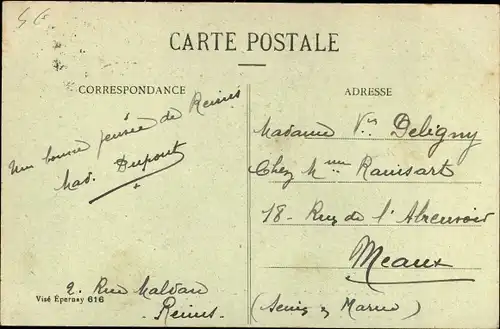 56
CARTE POSTALE
CORRESPONDANCE
Une bonne pensée de Reims
Mad. Dupont
2. Rue Maldan
Reims.
Visé Épernay 616
ADRESSE
Madame Vve Deligny
Chez Mme Ramsart
18 - Rue de l'Abreuvoir
Meaux
(Seine & Marne)